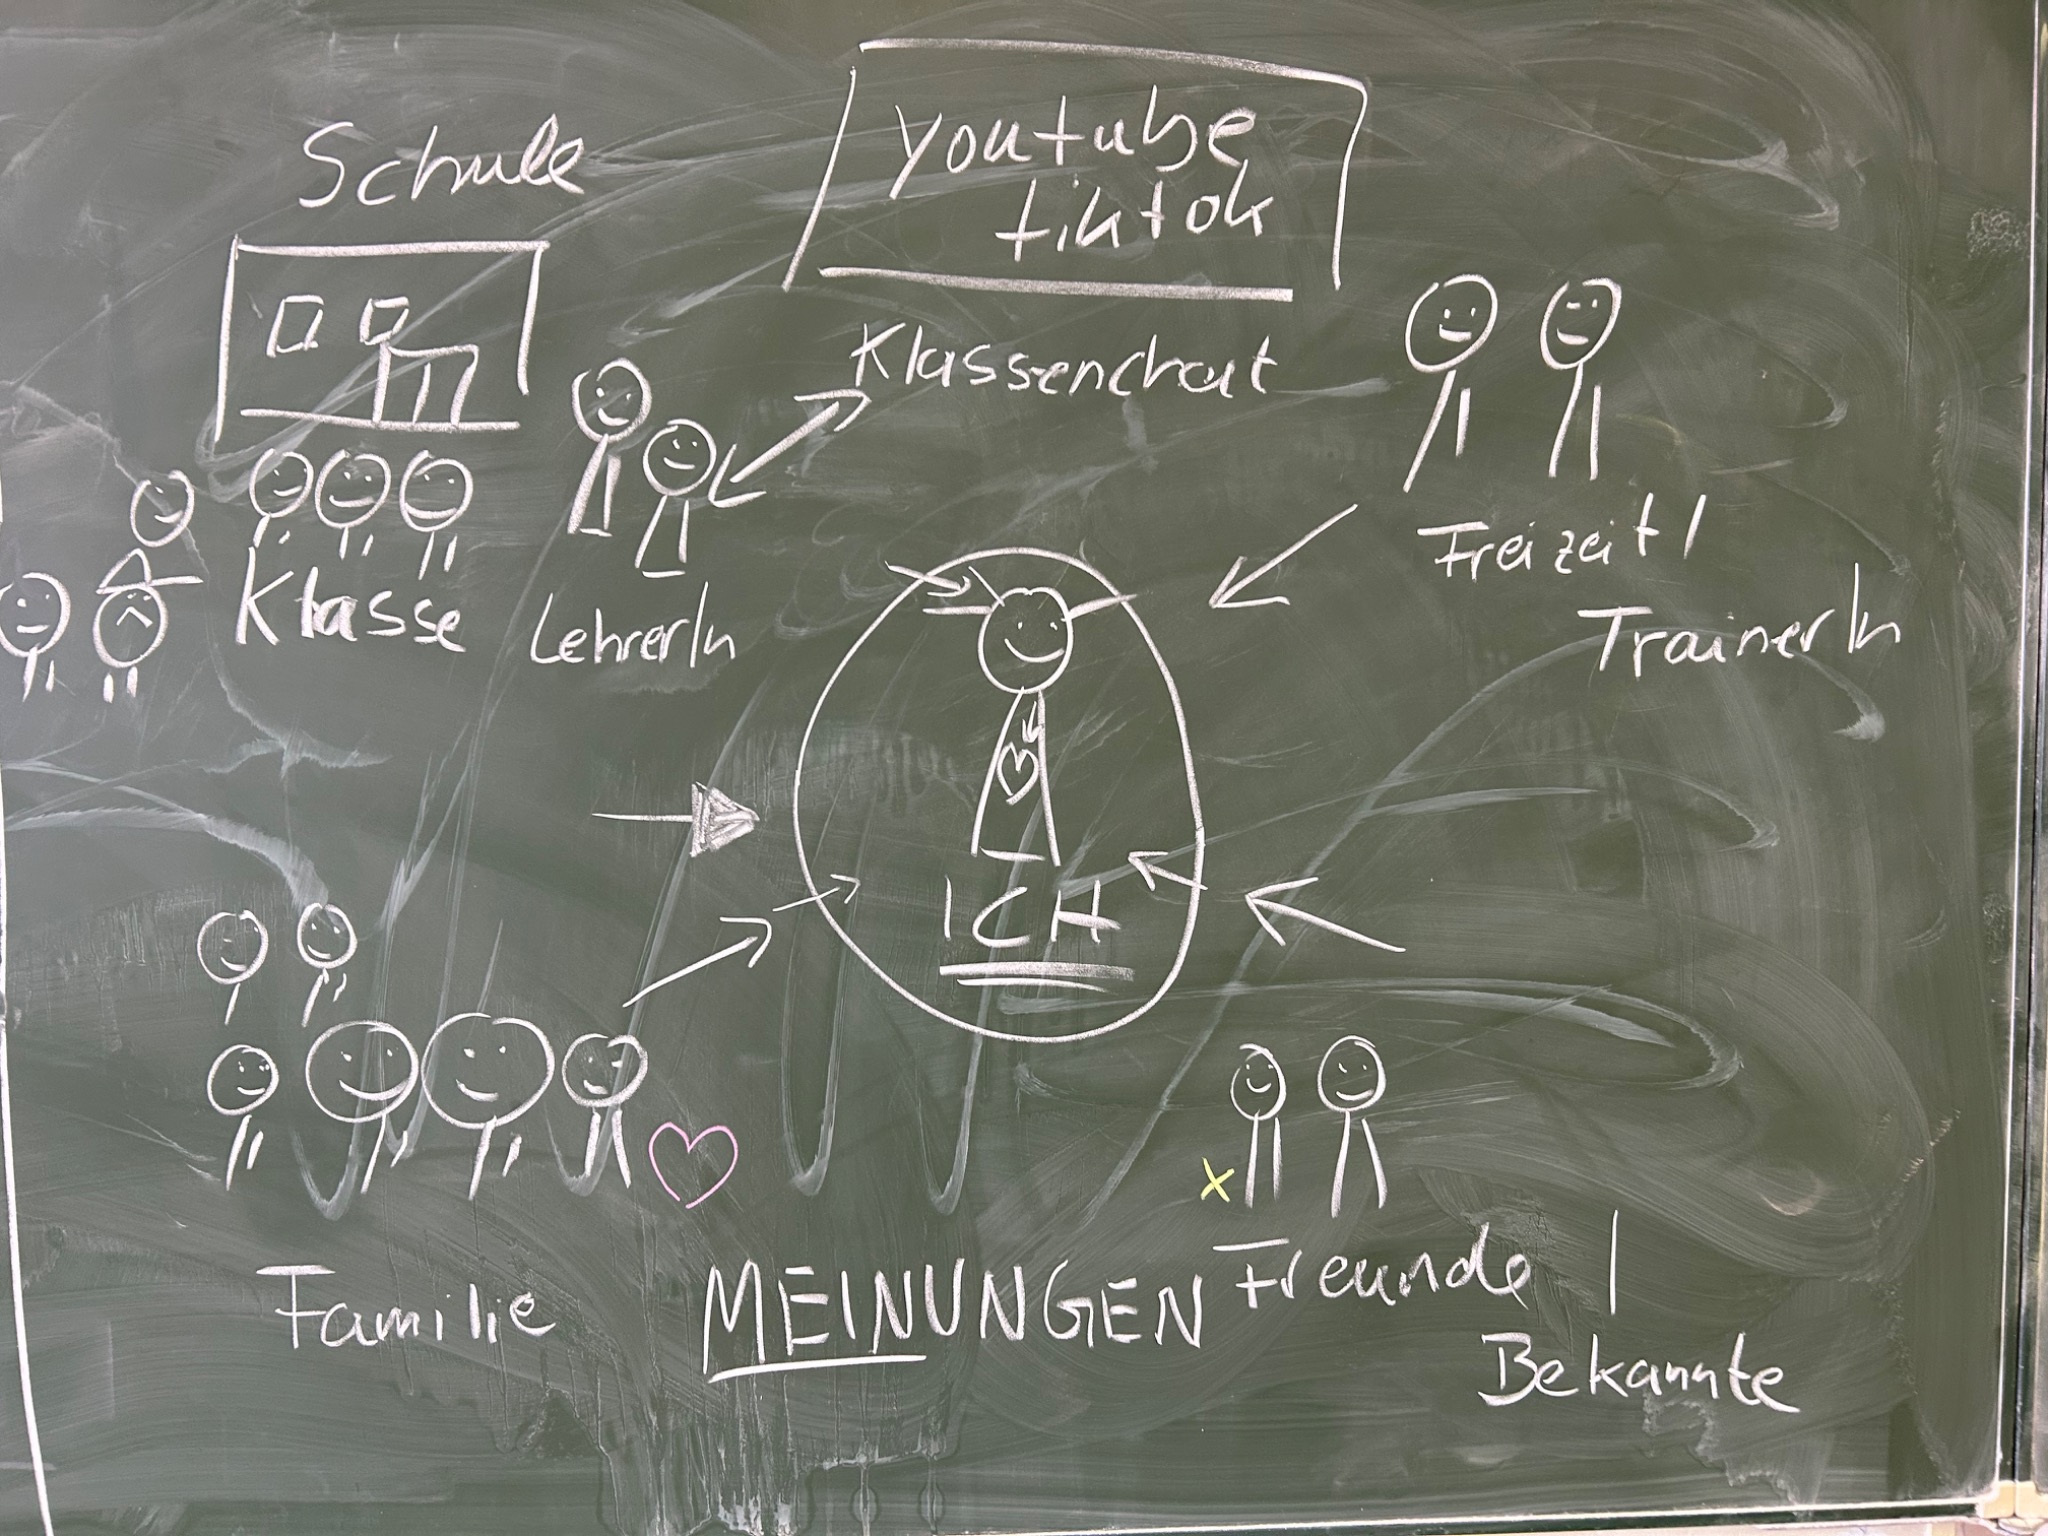 Schule
youtube
tiktok
Klassenchat
Klasse
LehrerIn
Freizeit/
TrainerIn
ICH
Familie
MEINUNGEN
Freunde /
Bekannte